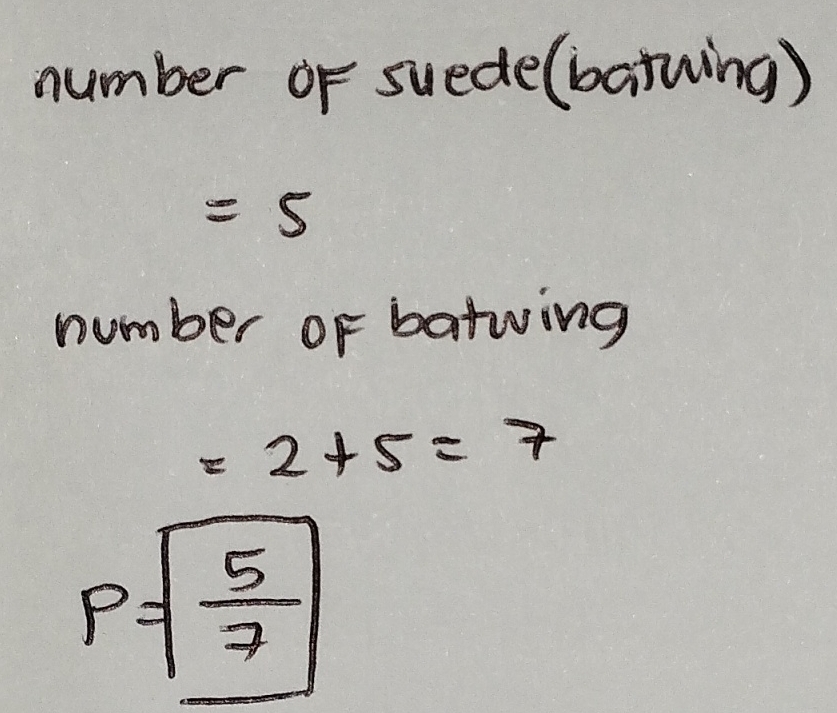 number of suede(batwing)
= 5
number of batwing
= 2+5= 7
P= 5/7